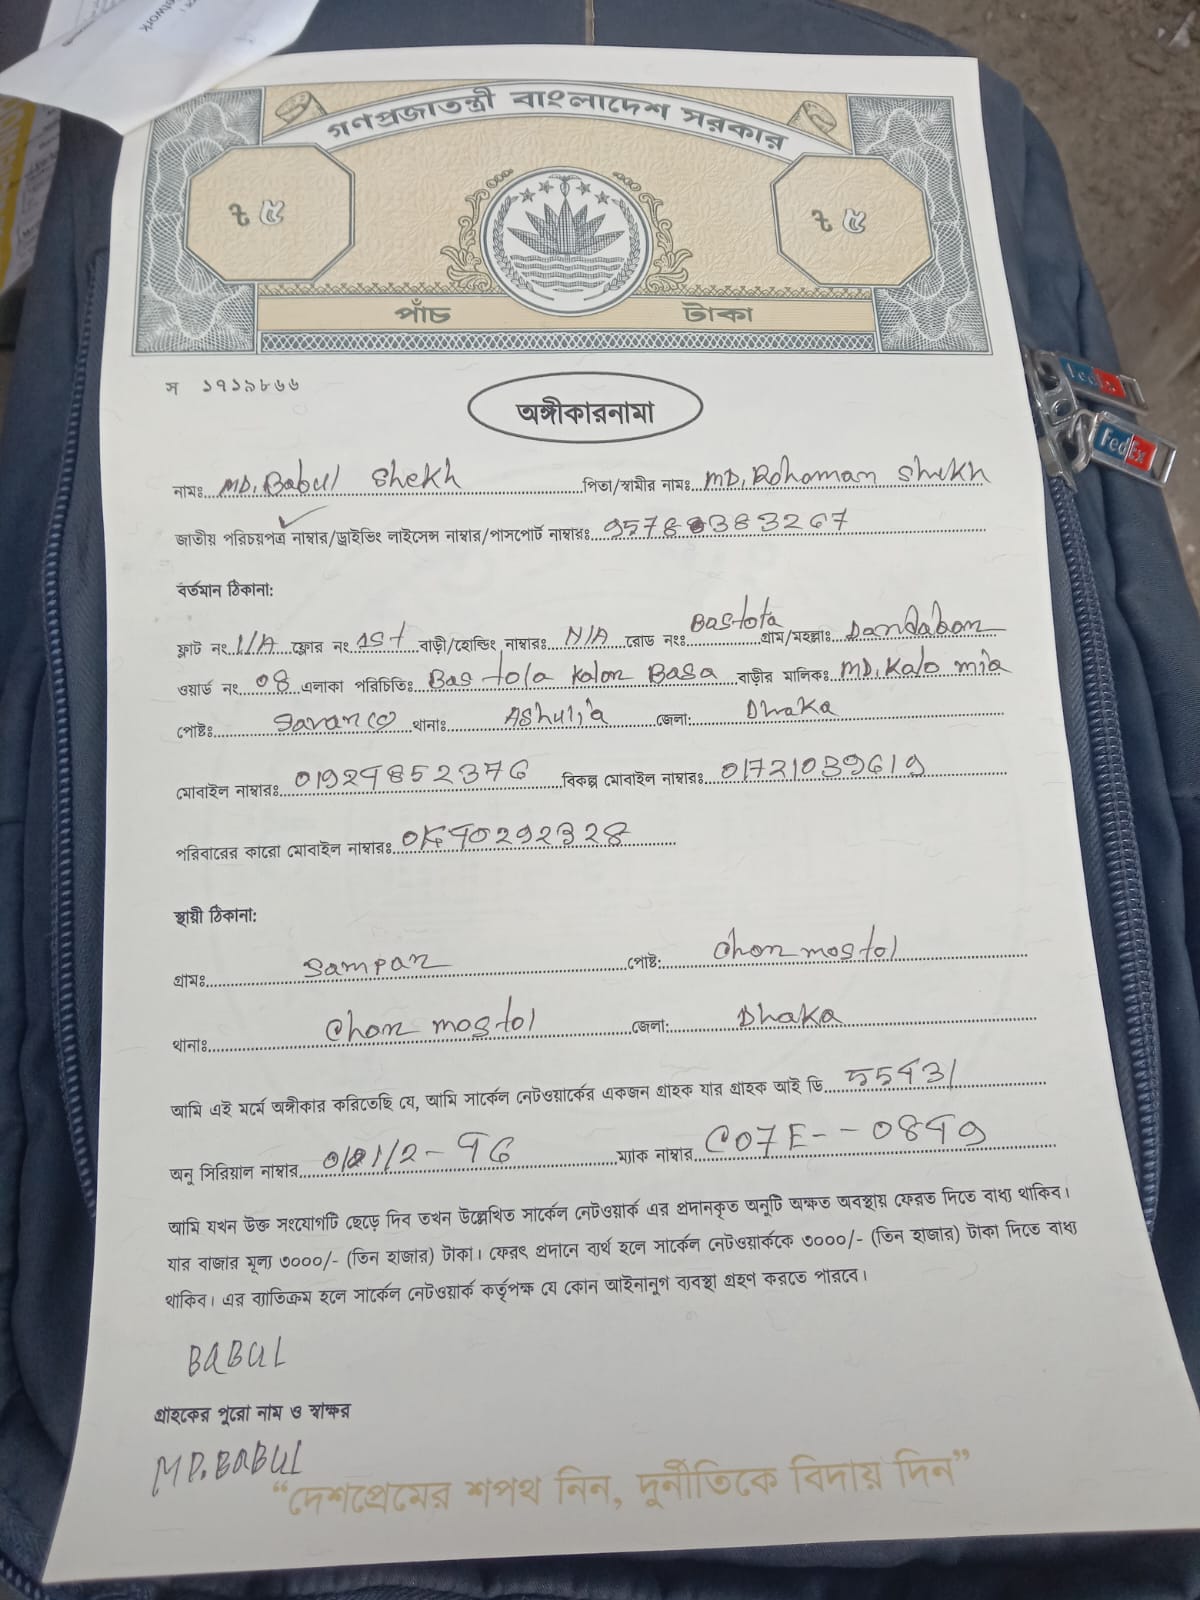 গণপ্রজাতন্ত্রী বাংলাদেশ সরকার
৳ ৫
৳ ৫
পাঁচ টাকা
স ১৭১৯৮৬৬
অঙ্গীকারনামা
নামঃ MD. Babul Shekh পিতা/স্বামীর নামঃ MD. Rohoman Shekh
জাতীয় পরিচয়পত্র নাম্বার/ড্রাইভিং লাইসেন্স নাম্বার/পাসপোর্ট নাম্বারঃ
বর্তমান ঠিকানা:
ফ্লাট নং ফ্লোর নং 1st বাড়ী/হোল্ডিং নাম্বারঃ N/A রোড নংঃ Bastota গ্রাম/মহল্লাঃ Dandabon
ওয়ার্ড নং 08 এলাকা পরিচিতিঃ Bas tola Kalon Basa বাড়ীর মালিকঃ MD. Kalo mia
পোষ্টঃ থানাঃ Ashulia জেলা: Dhaka
মোবাইল নাম্বারঃ 01929852376 বিকল্প মোবাইল নাম্বারঃ 01721039619
পরিবারের কারো মোবাইল নাম্বারঃ
স্থায়ী ঠিকানা:
গ্রামঃ Sampan পোষ্ট: Chon mostol
থানাঃ Chon mostol জেলা: Dhaka
আমি এই মর্মে অঙ্গীকার করিতেছি যে, আমি সার্কেল নেটওয়ার্কের একজন গ্রাহক যার গ্রাহক আই ডি 55931
অনু সিরিয়াল নাম্বার ম্যাক নাম্বার C07E--0899
আমি যখন উক্ত সংযোগটি ছেড়ে দিব তখন উল্লেখিত সার্কেল নেটওয়ার্ক এর প্রদানকৃত অনুটি অক্ষত অবস্থায় ফেরত দিতে বাধ্য থাকিব।
যার বাজার মূল্য ৩০০০/- (তিন হাজার) টাকা। ফেরৎ প্রদানে ব্যর্থ হলে সার্কেল নেটওয়ার্ককে ৩০০০/- (তিন হাজার) টাকা দিতে বাধ্য
থাকিব। এর ব্যাতিক্রম হলে সার্কেল নেটওয়ার্ক কর্তৃপক্ষ যে কোন আইনানুগ ব্যবস্থা গ্রহণ করতে পারবে।
BABUL
গ্রাহকের পুরো নাম ও স্বাক্ষর
MD. BABUL
“দেশপ্রেমের শপথ নিন, দুর্নীতিকে বিদায় দিন”
FedEx
FedEx